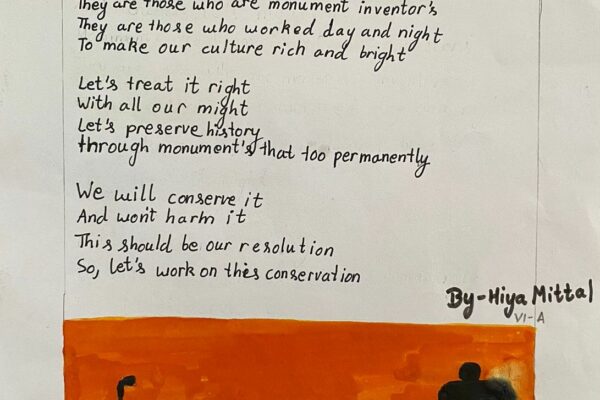 They are those who are monument inventor's
They are those who worked day and night
To make our culture rich and bright
Let's treat it right
With all our might
Let's preserve history
through monument's that too permanently
We will conserve it
And won't harm it
This should be our resolution
So, let's work on this conservation
By-Hiya Mittal
VI-A